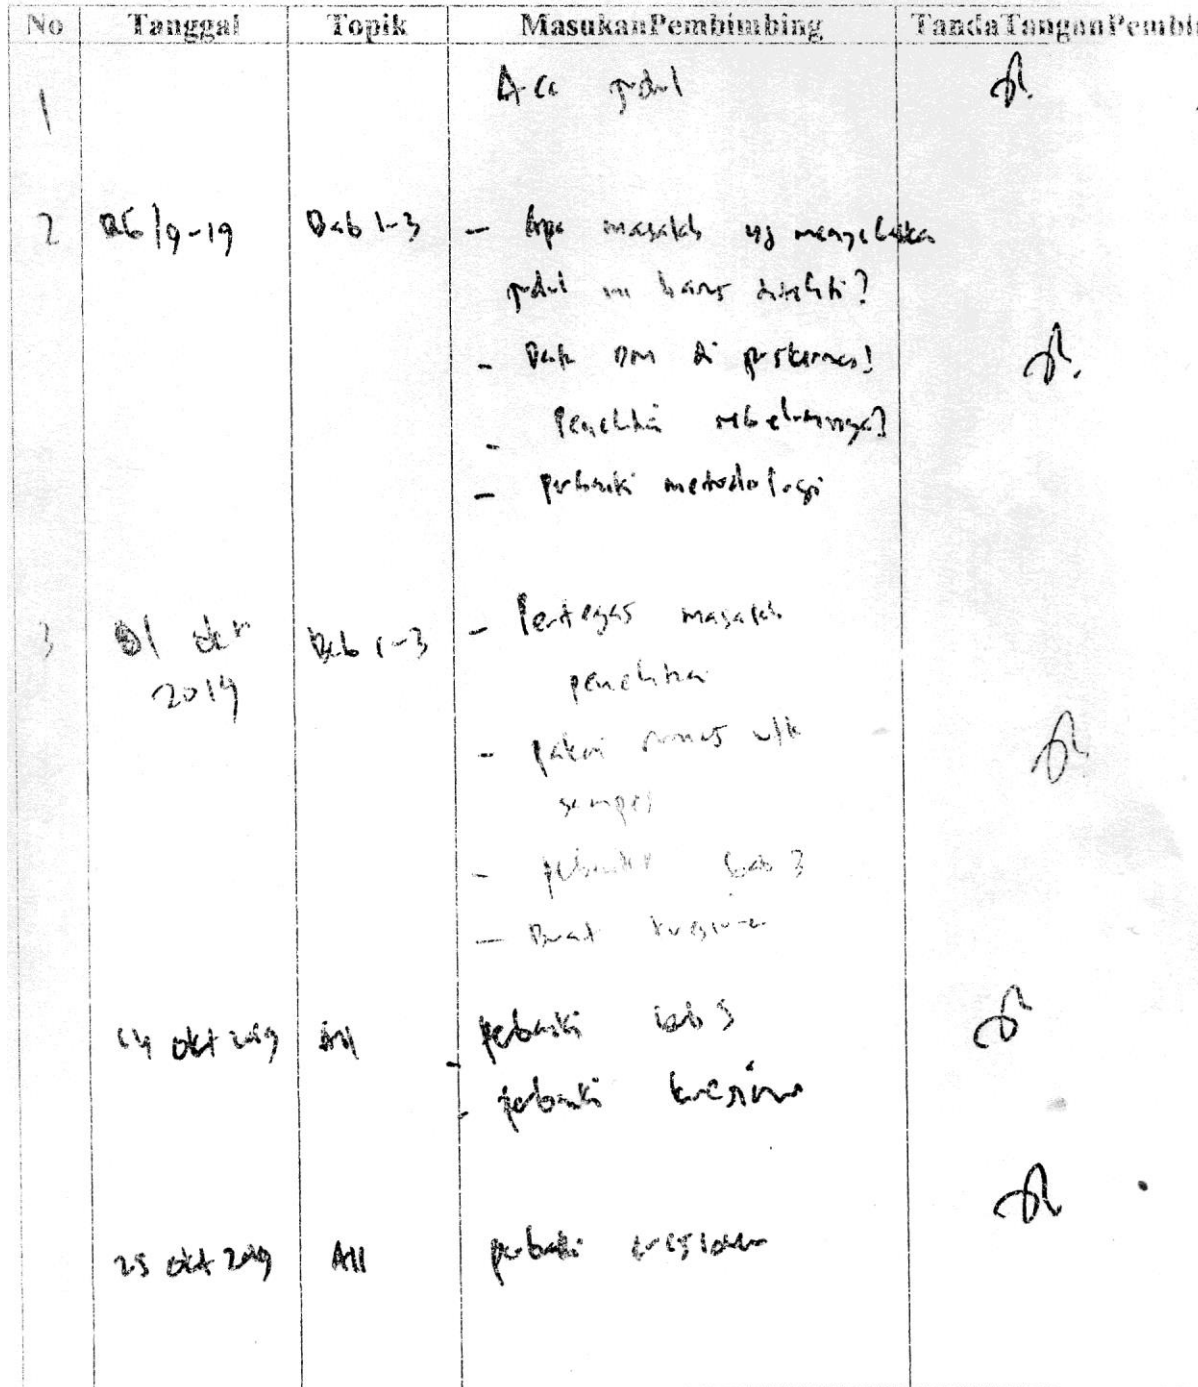 No Tanggal Topik MasukanPembimbing TandaTanganPembi
1 Acc judul
2 26/9-19 Bab 1-3 - Apa masalah yg menyebabka
judul ini harus diteliti?
- Data DM di puskesmas!
- Penelitia sebelumnya?
- perbaiki metodologi
3 01 okt Bab 1-3 - Pertegas masalah
2019 penelitia
- pakai rumus u/k
sampel
- perbaiki bab 3
- Buat kuesioner
14 okt 2019 All - perbaiki bab 3
- perbaiki kuesioner
25 okt 2019 All perbaiki kuesioner